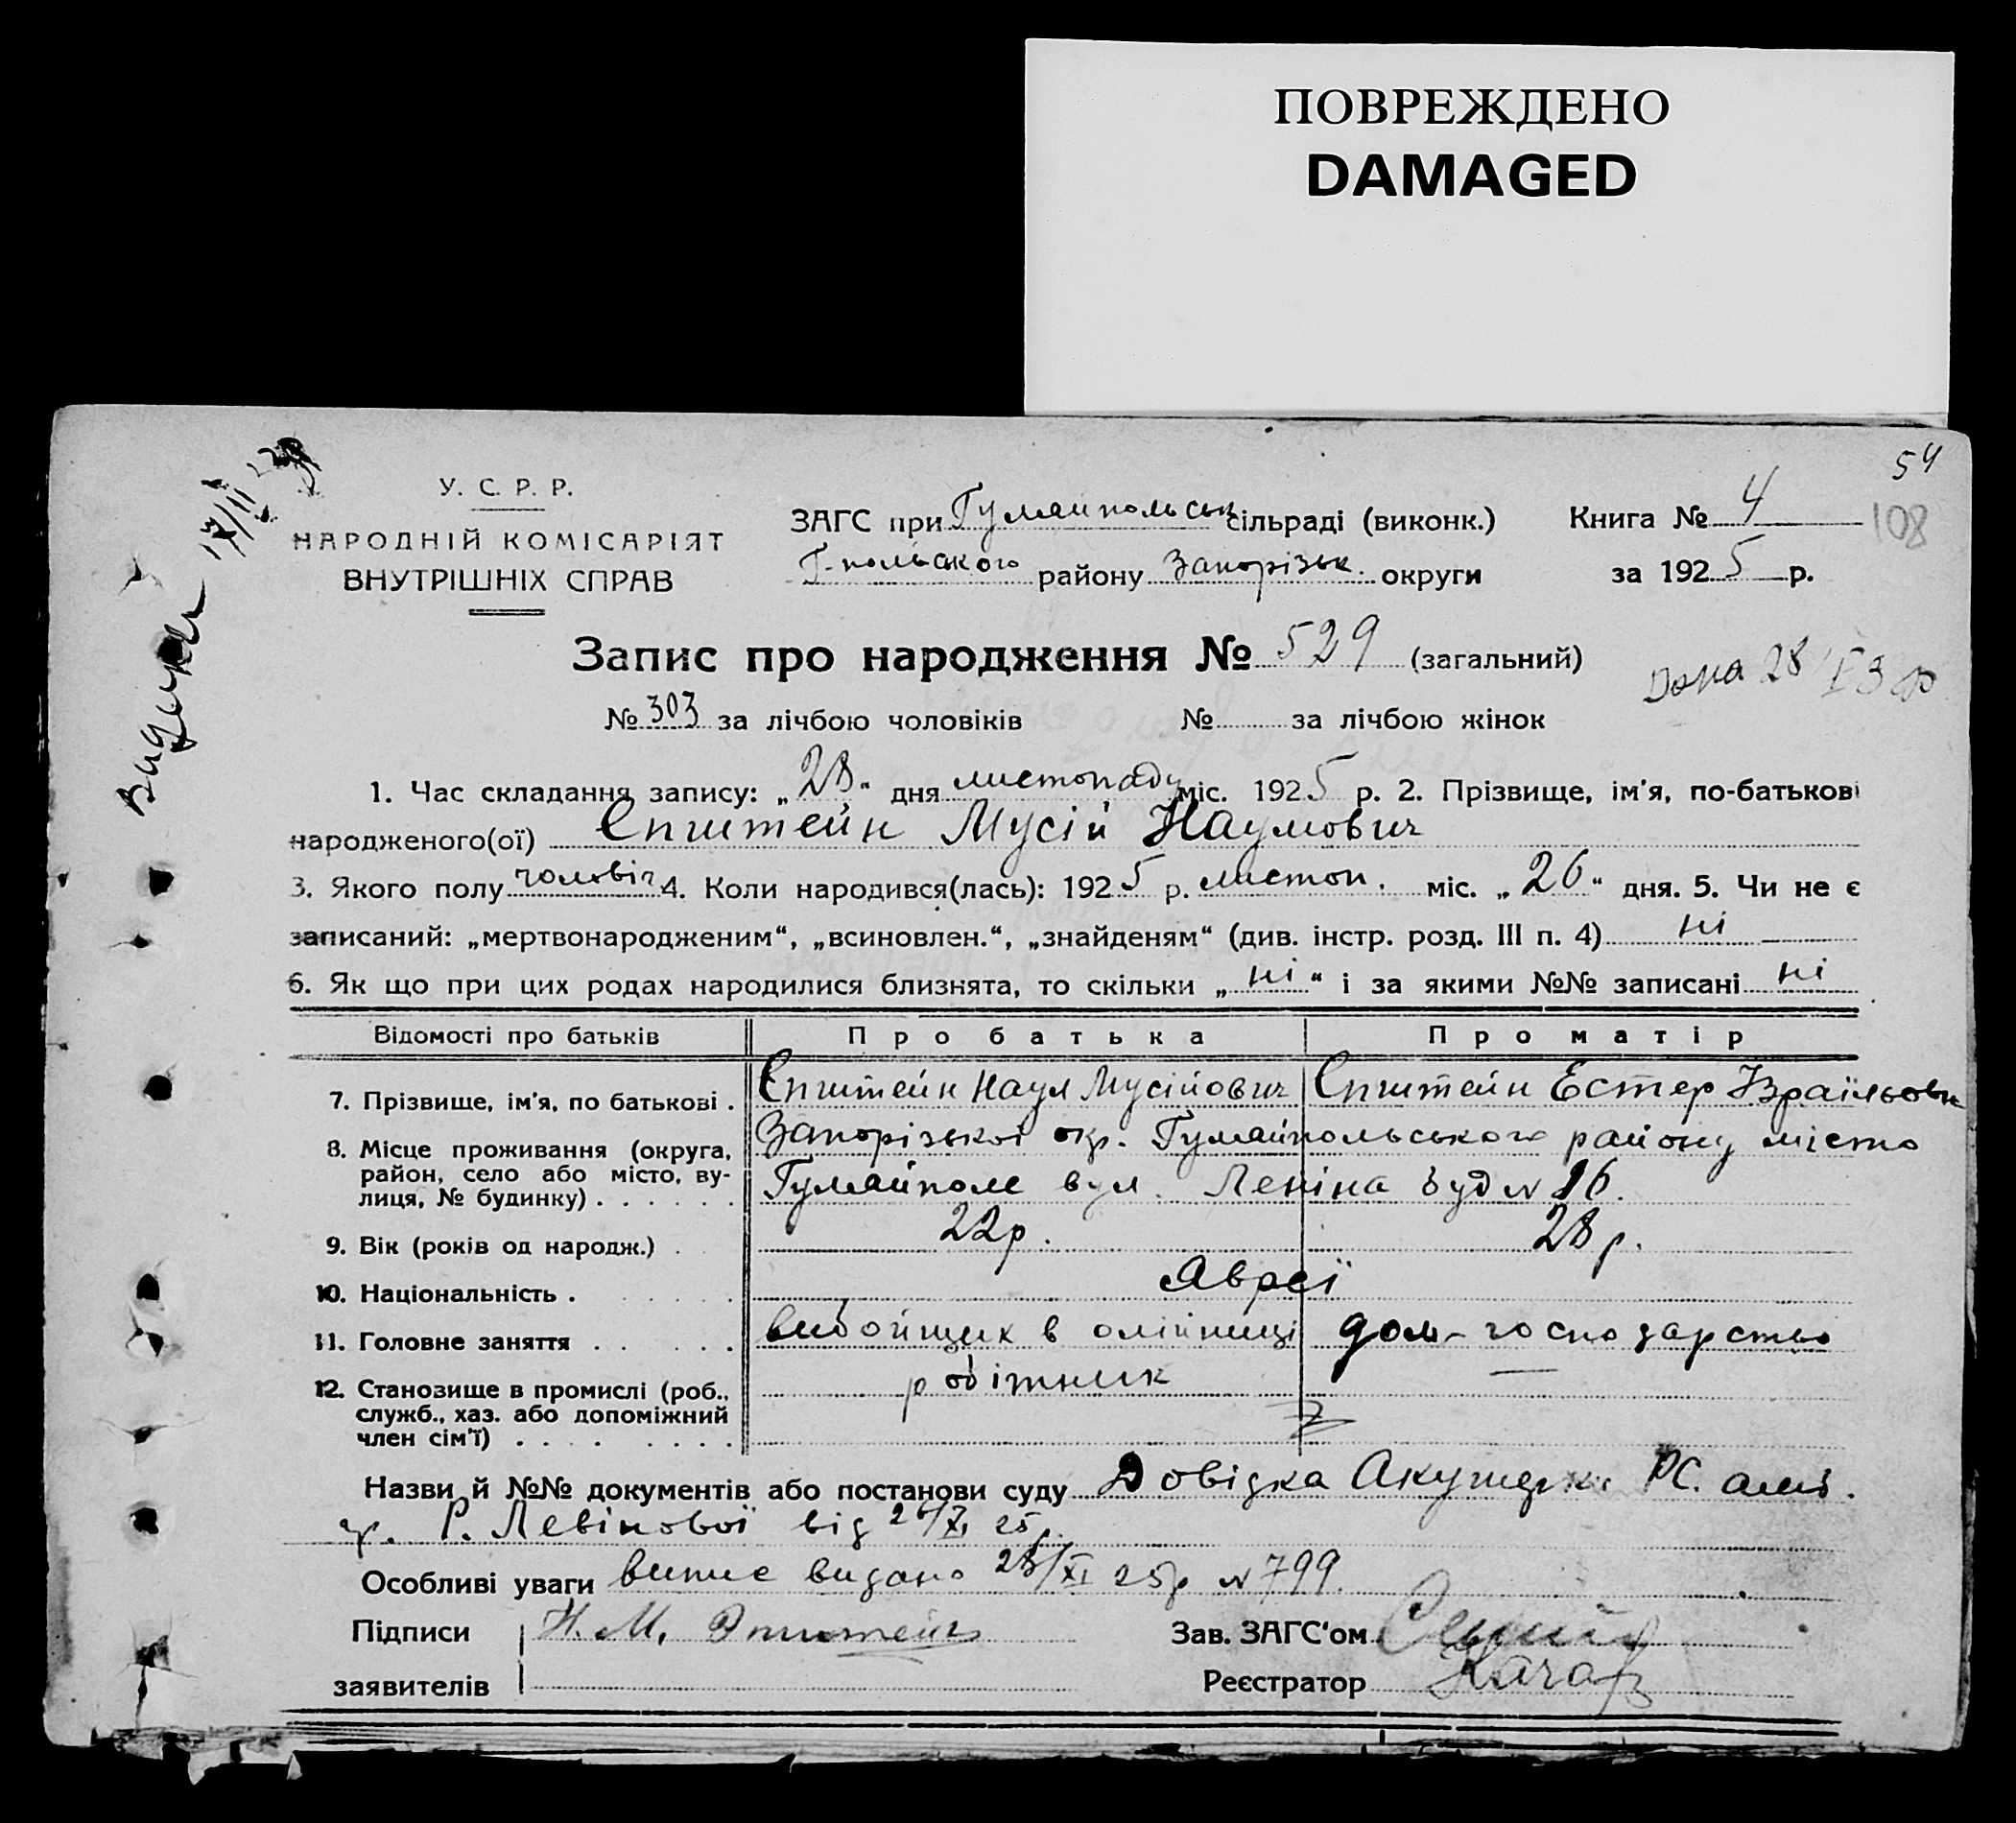 ПОВРЕЖДЕНО
DAMAGED
54
108
У. С. Р. Р.
НАРОДНІЙ КОМІСАРІЯТ
ВНУТРІШНІХ СПРАВ
ЗАГС при Гуляйпольськ сільраді (виконк.) Книга № 4
Г-польского району Запорізьк. округи за 1925 р.
Запис про народження № 529 (загальний)
№ 303 за лічбою чоловіків № за лічбою жінок
1. Час складання запису: „28“ дня листопаду міс. 1925 р. 2. Прізвище, ім'я, по-батькові
народженого(ої) Епштейн Мусій Наумович
3. Якого полу чоловіч 4. Коли народився(лась): 1925 р. листоп. міс. „26“ дня. 5. Чи не є
записаний: „мертвонародженим“, „всиновлен.“, „знайденям“ (див. інстр. розд. III п. 4) ні
6. Як що при цих родах народилися близнята, то скільки „ні“ і за якими №№ записані ні
Відомості про батьків Про батька Про матір
7. Прізвище, ім'я, по батькові . Епштейн Наум Мусійович Епштейн Естер Ізраїльовн
8. Місце проживання (округа, район, село або місто, вулиця, № будинку) . . . . . . Запорізької окр. Гуляйпольського району місто
Гуляйполе вул. Леніна буд № 16.
9. Вік (років од народж.) . 22р. 28р.
10. Національність . Явреї
11. Головне заняття . . . . . вибойщик в олійниці дом-господарство
12. Становище в промислі (роб., служб., хаз. або допоміжний член сім'ї) . . . . . . . . робітник —
Назви й №№ документів або постанови суду Довідка Акушерки РС. амб.
гр. Р. Левінової від 26/XI 25р.
Особливі уваги випис видано 28/XI 25р № 799.
Підписи Н. М. Эпштейн Зав. ЗАГС'ом
заявителів Реєстратор